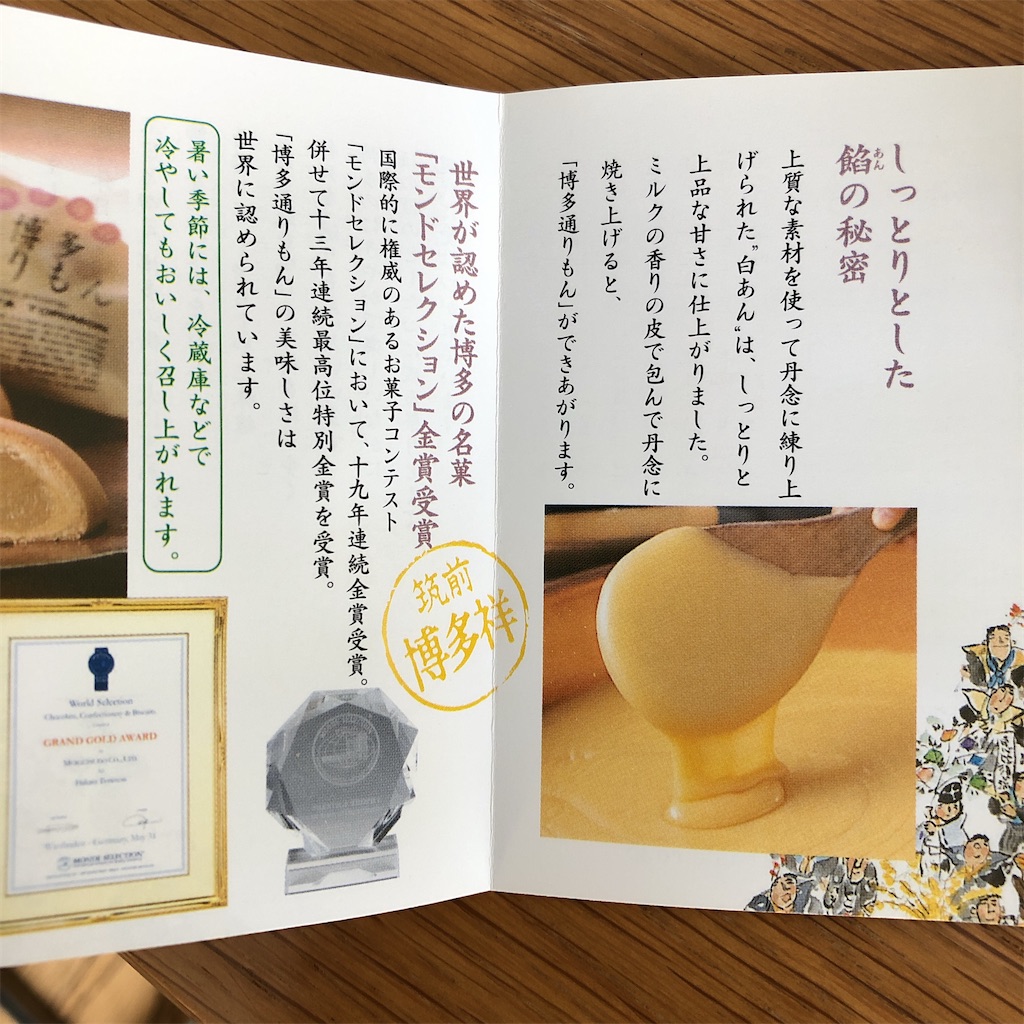 しっとりとした
餡の秘密
あん
上質な素材を使って丹念に練り上
げられた"白あん"は、しっとりと
上品な甘さに仕上がりました。
ミルクの香りの皮で包んで丹念に
焼き上げると、
「博多通りもん」ができあがります。
世界が認めた博多の名菓
「モンドセレクション」金賞受賞
国際的に権威のあるお菓子コンテスト
「モンドセレクション」において、十九年連続金賞受賞。
併せて十三年連続最高位特別金賞を受賞。
「博多通りもん」の美味しさは
世界に認められています。
筑前
博多祥
暑い季節には、冷蔵庫などで
冷やしてもおいしく召し上がれます。
博多
りもん
World Selection
Chocolate, Confectionery & Biscuits
GRAND GOLD AWARD
MONDE SELECTION